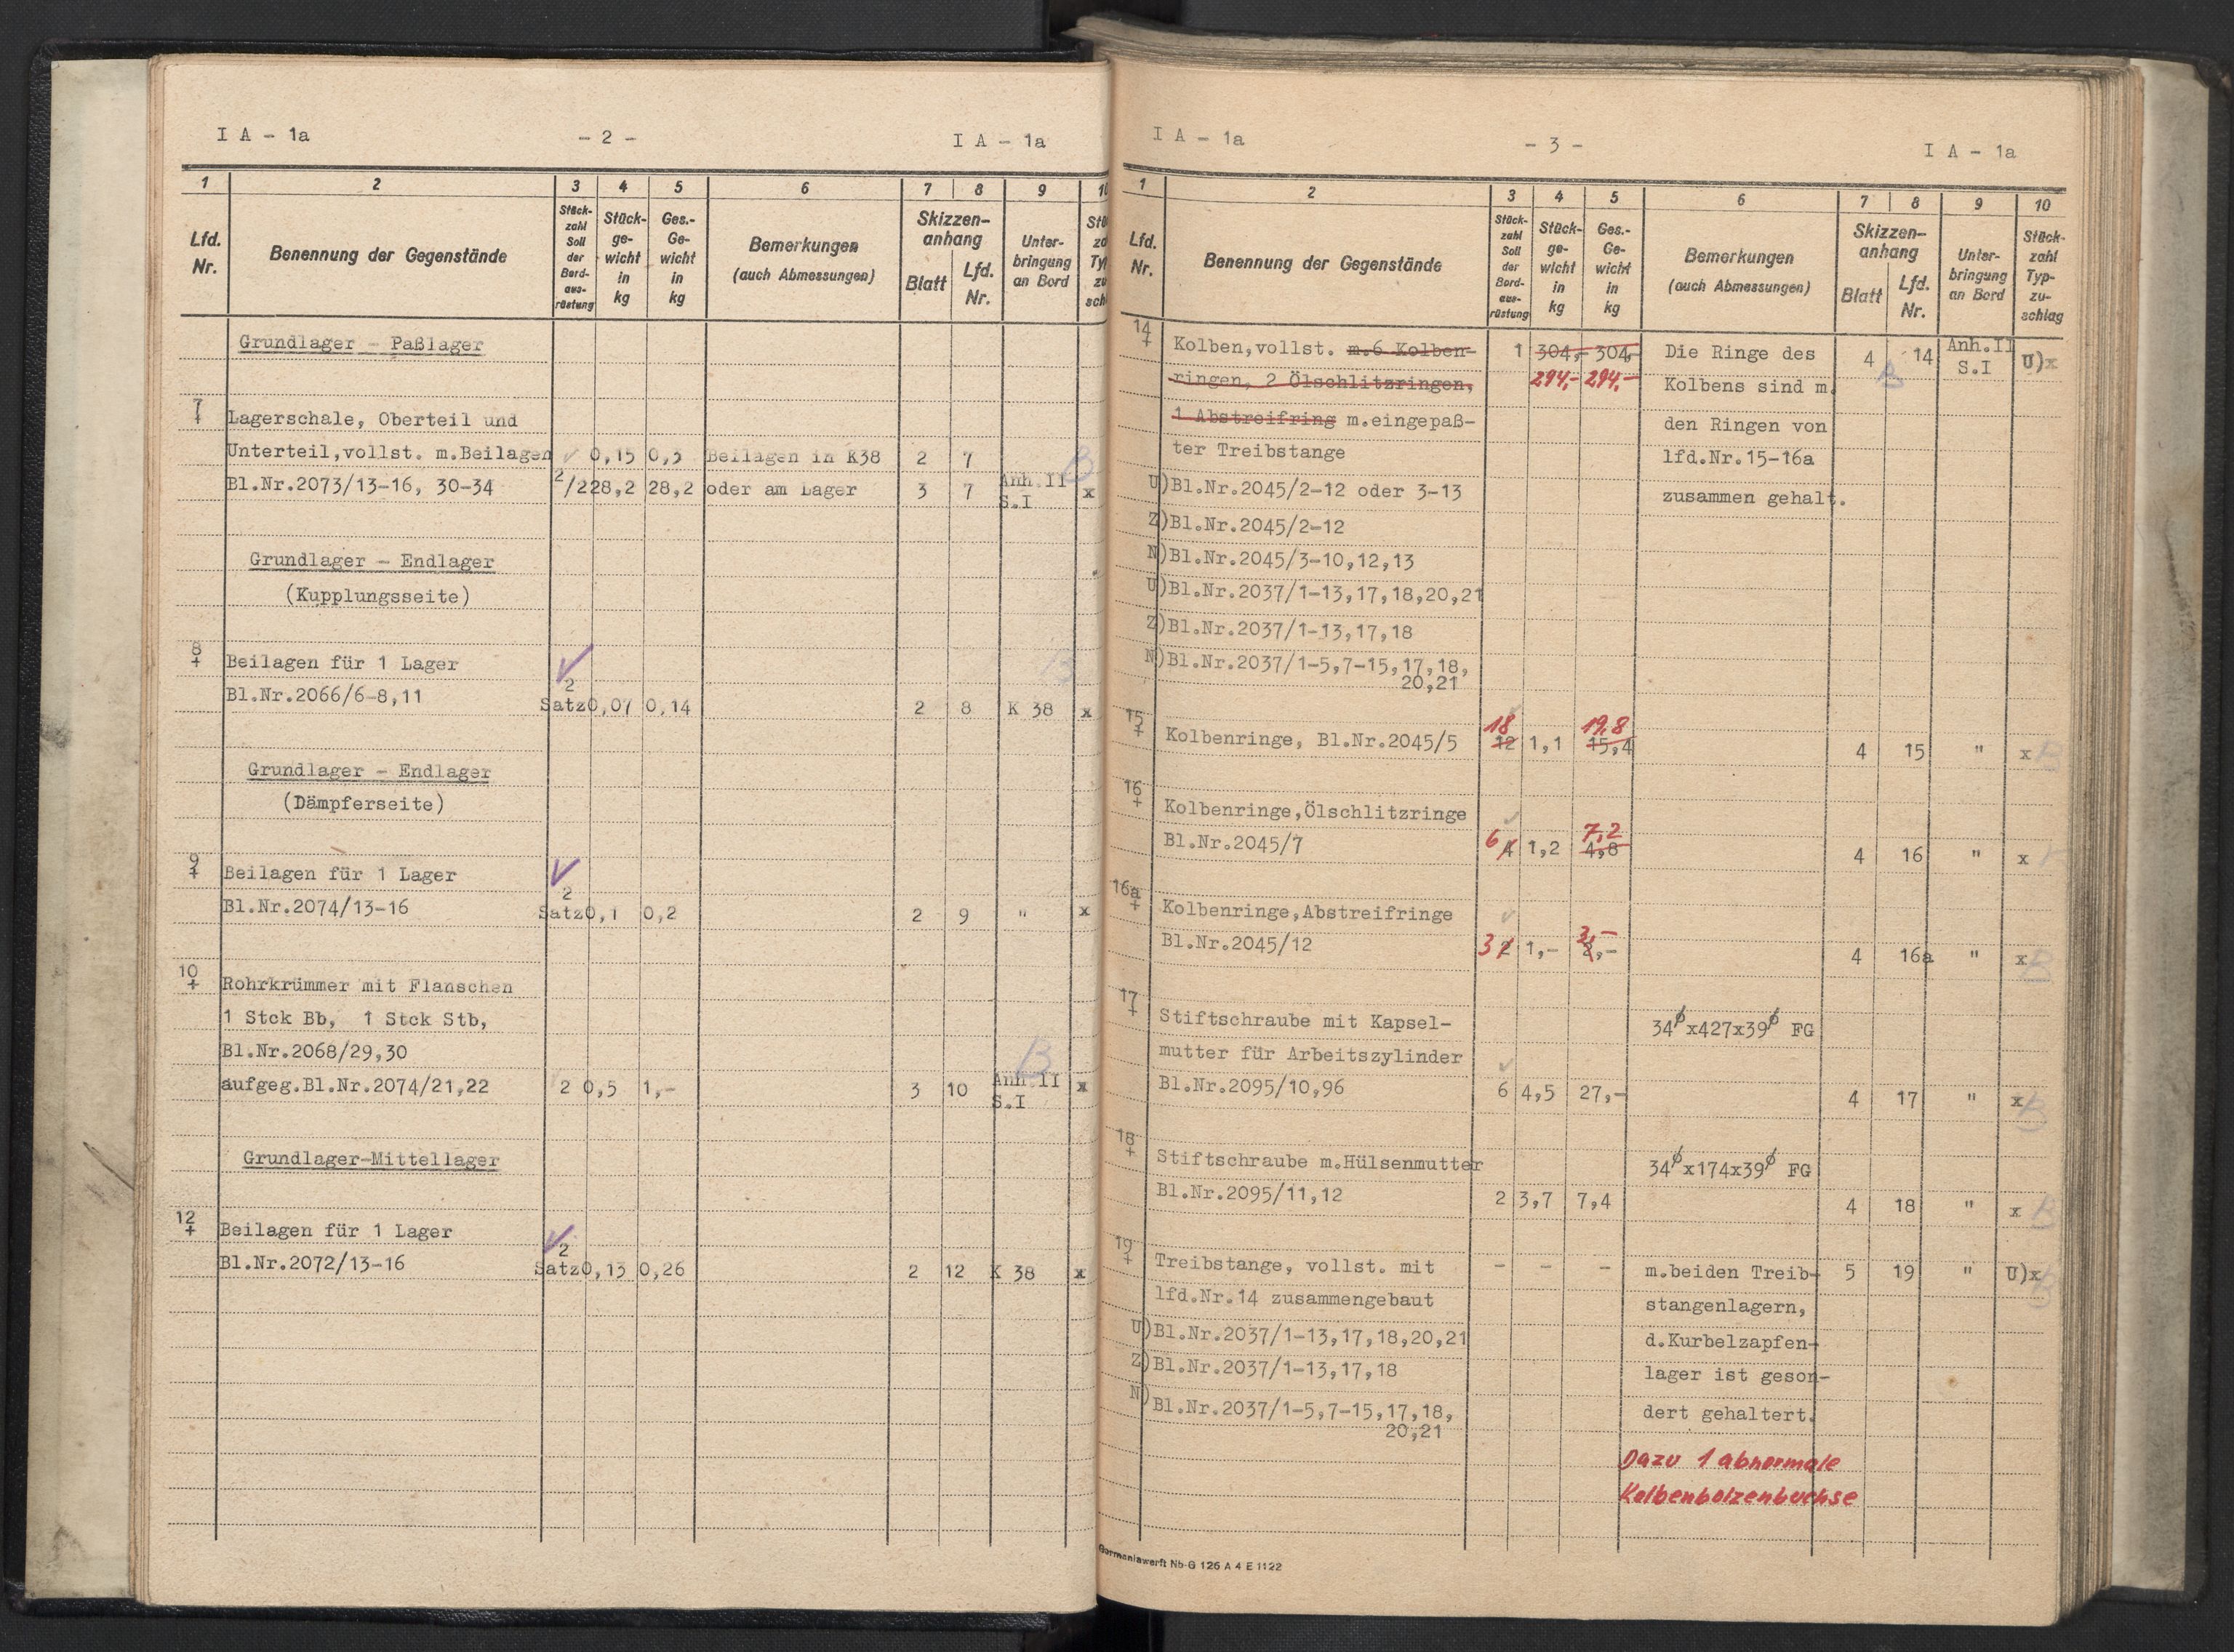 I A - 1a - 2 - I A - 1a
1 2 3 4 5 6 7 8 9 10
Lfd. Nr. Benennung der Gegenstände Stück-zahl Soll der Bord-aus-rüstung Stück-ge-wicht in kg Ges.-Ge-wicht in kg Bemerkungen (auch Abmessungen) Skizzen-anhang Blatt Lfd. Nr. Unter-bringung an Bord
Grundlager - Paßlager
7
+ Lagerschale, Oberteil und
Unterteil,vollst. m.Beilagen 0,15 0,3 Beilagen in K38 2 7 B
Bl.Nr.2073/13-16, 30-34 2/2 28,2 28,2 oder am Lager 3 7 Anh.II x
S.I
Grundlager - Endlager
(Kupplungsseite)
8
+ Beilagen für 1 Lager B
2
Bl.Nr.2066/6-8,11 Satz 0,07 0,14 2 8 K 38 x
Grundlager - Endlager
(Dämpferseite)
9
+ Beilagen für 1 Lager
2
Bl.Nr.2074/13-16 Satz 0,1 0,2 2 9 " x
10
+ Rohrkrümmer mit Flanschen
1 Stck Bb, 1 Stck Stb,
Bl.Nr.2068/29,30 B
aufgeg.Bl.Nr.2074/21,22 2 0,5 1,- 3 10 Anh.II x
S.I
Grundlager-Mittellager
12
+ Beilagen für 1 Lager
2
Bl.Nr.2072/13-16 Satz 0,13 0,26 2 12 K 38 x
I A - 1a - 3 - I A - 1a
1 2 3 4 5 6 7 8 9 10
Lfd. Nr. Benennung der Gegenstände Stück-zahl Soll der Bord-aus-rüstung Stück-ge-wicht in kg Ges.-Ge-wicht in kg Bemerkungen (auch Abmessungen) Skizzen-anhang Blatt Lfd. Nr. Unter-bringung an Bord Stück-zahl Typ-zu-schlag
14
+ Kolben,vollst. m.6 Kolben- 1 304,- 304,- Die Ringe des 4 14 Anh.II S.I U)x
ringen, 2 Ölschlitzringen, 294,- 294,- Kolbens sind m. B
1 Abstreifring m.eingepaß- den Ringen von
ter Treibstange lfd.Nr.15-16a
U)Bl.Nr.2045/2-12 oder 3-13 zusammen gehalt.
Z)Bl.Nr.2045/2-12
N)Bl.Nr.2045/3-10,12,13
U)Bl.Nr.2037/1-13,17,18,20,21
Z)Bl.Nr.2037/1-13,17,18
N)Bl.Nr.2037/1-5,7-15,17,18,
20,21
15 18 19,8
+ Kolbenringe, Bl.Nr.2045/5 12 1,1 15,4 4 15 " x B
16
+ Kolbenringe,Ölschlitzringe
7,2
Bl.Nr.2045/7 6 4 1,2 4,8 4 16 " x
16a
+ Kolbenringe,Abstreifringe
3,-
Bl.Nr.2045/12 3 2 1,- 2,- 4 16a " x B
17
+ Stiftschraube mit Kapsel- 34⌀x427x39⌀ FG
mutter für Arbeitszylinder
Bl.Nr.2095/10,96 6 4,5 27,- 4 17 " x B
18
+ Stiftschraube m.Hülsenmutter 34⌀x174x39⌀ FG
Bl.Nr.2095/11,12 2 3,7 7,4 4 18 " x B
19
+ Treibstange, vollst. mit - - - m.beiden Treib- 5 19 " U)x B
lfd.Nr.14 zusammengebaut stangenlagern,
U)Bl.Nr.2037/1-13,17,18,20,21 d.Kurbelzapfen-
Z)Bl.Nr.2037/1-13,17,18 lager ist geson-
N)Bl.Nr.2037/1-5,7-15,17,18, dert gehaltert.
20,21
Dazu 1 abnormale
Kolbenbolzenbuchse
Germaniawerft Nb-G 126 A 4 E 1122